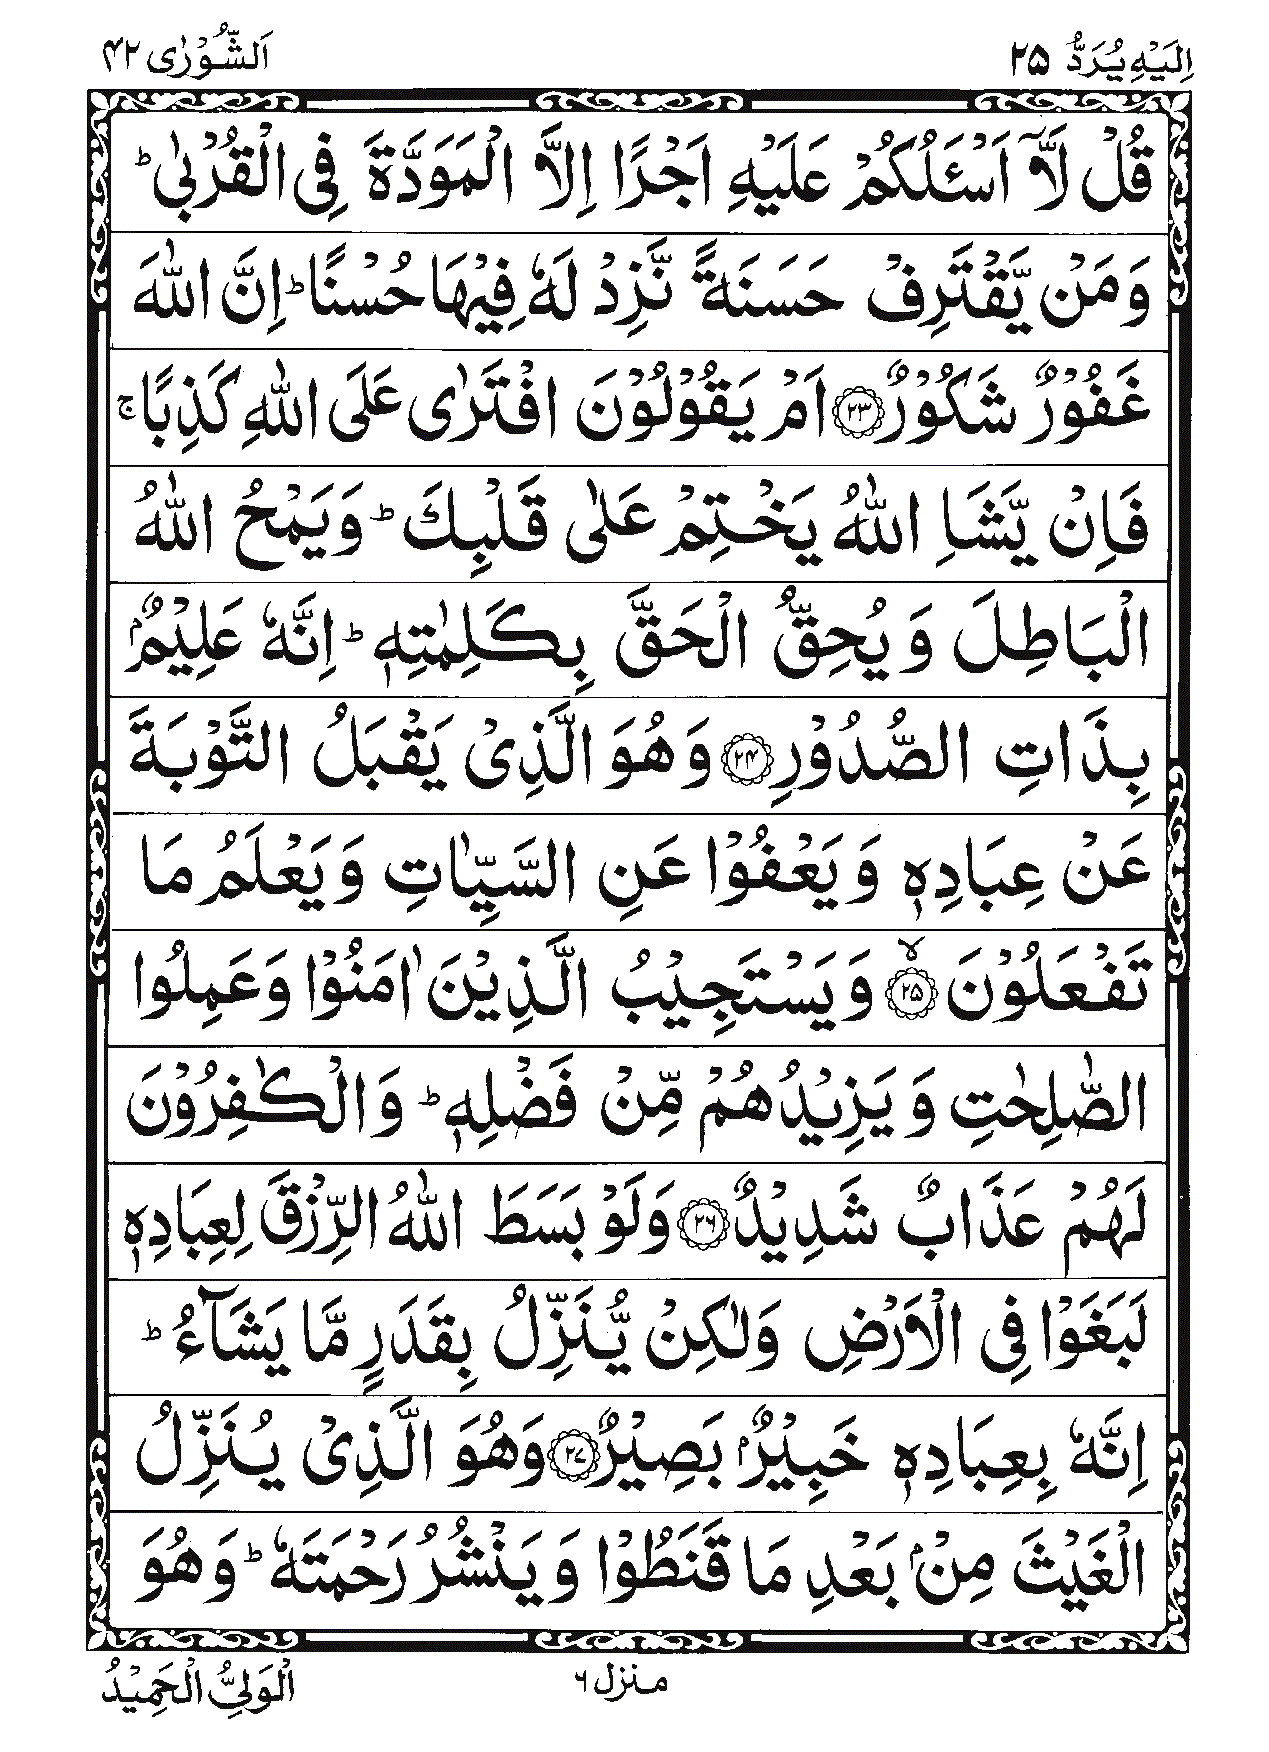 اِلَیْهِ یُرَدُّ ۲۵
اَلشُّوْرٰی ۴۲
قُلْ لَّاۤ اَسْـَٔلُكُمْ عَلَیْهِ اَجْرًا اِلَّا الْمَوَدَّةَ فِی الْقُرْبٰی ؕ
وَ مَنْ یَّقْتَرِفْ حَسَنَةً نَّزِدْ لَهٗ فِیْهَا حُسْنًا ؕ اِنَّ اللّٰهَ
غَفُوْرٌ شَكُوْرٌ ۲۳ اَمْ یَقُوْلُوْنَ افْتَرٰی عَلَی اللّٰهِ كَذِبًا ۚ
فَاِنْ یَّشَاِ اللّٰهُ یَخْتِمْ عَلٰی قَلْبِكَ ؕ وَ یَمْحُ اللّٰهُ
الْبَاطِلَ وَ یُحِقُّ الْحَقَّ بِكَلِمٰتِهٖ ؕ اِنَّهٗ عَلِیْمٌۢ
بِذَاتِ الصُّدُوْرِ ۲۴ وَ هُوَ الَّذِیْ یَقْبَلُ التَّوْبَةَ
عَنْ عِبَادِهٖ وَ یَعْفُوْا عَنِ السَّیِّاٰتِ وَ یَعْلَمُ مَا
تَفْعَلُوْنَ ۙ ۲۵ وَ یَسْتَجِیْبُ الَّذِیْنَ اٰمَنُوْا وَ عَمِلُوا
الصّٰلِحٰتِ وَ یَزِیْدُهُمْ مِّنْ فَضْلِهٖ ؕ وَ الْكٰفِرُوْنَ
لَهُمْ عَذَابٌ شَدِیْدٌ ۲۶ وَ لَوْ بَسَطَ اللّٰهُ الرِّزْقَ لِعِبَادِهٖ
لَبَغَوْا فِی الْاَرْضِ وَ لٰكِنْ یُّنَزِّلُ بِقَدَرٍ مَّا یَشَآءُ ؕ
اِنَّهٗ بِعِبَادِهٖ خَبِیْرٌۢ بَصِیْرٌ ۲۷ وَ هُوَ الَّذِیْ یُنَزِّلُ
الْغَیْثَ مِنْۢ بَعْدِ مَا قَنَطُوْا وَ یَنْشُرُ رَحْمَتَهٗ ؕ وَ هُوَ
منزل ۶
الْوَلِیُّ الْحَمِیْدُ